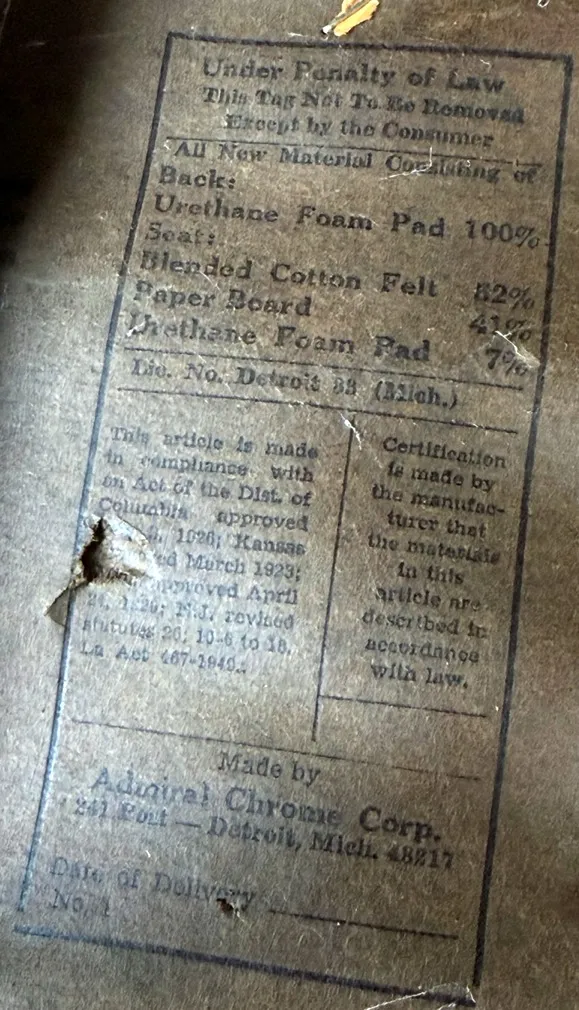 Under Penalty of Law
This Tag Not To Be Removed
Except by the Consumer
All New Material Consisting of
Back:
Urethane Foam Pad 100%
Seat:
Blended Cotton Felt 52%
Paper Board 41%
Urethane Foam Pad 7%
Lic. No. Detroit 33 (Mich.)
This article is made
in compliance with
an Act of the Dist. of
Columbia approved
1926; Kansas
March 1923;
approved April
N.J. revised
statutes 26; 10-6 to 18.
La Act 467-1949.
Certification
is made by
the manufac-
turer that
the materials
in this
article are
described in
accordance
with law.
Made by
Admiral Chrome Corp.
241 Fort — Detroit, Mich. 48217
Date of Delivery
No.